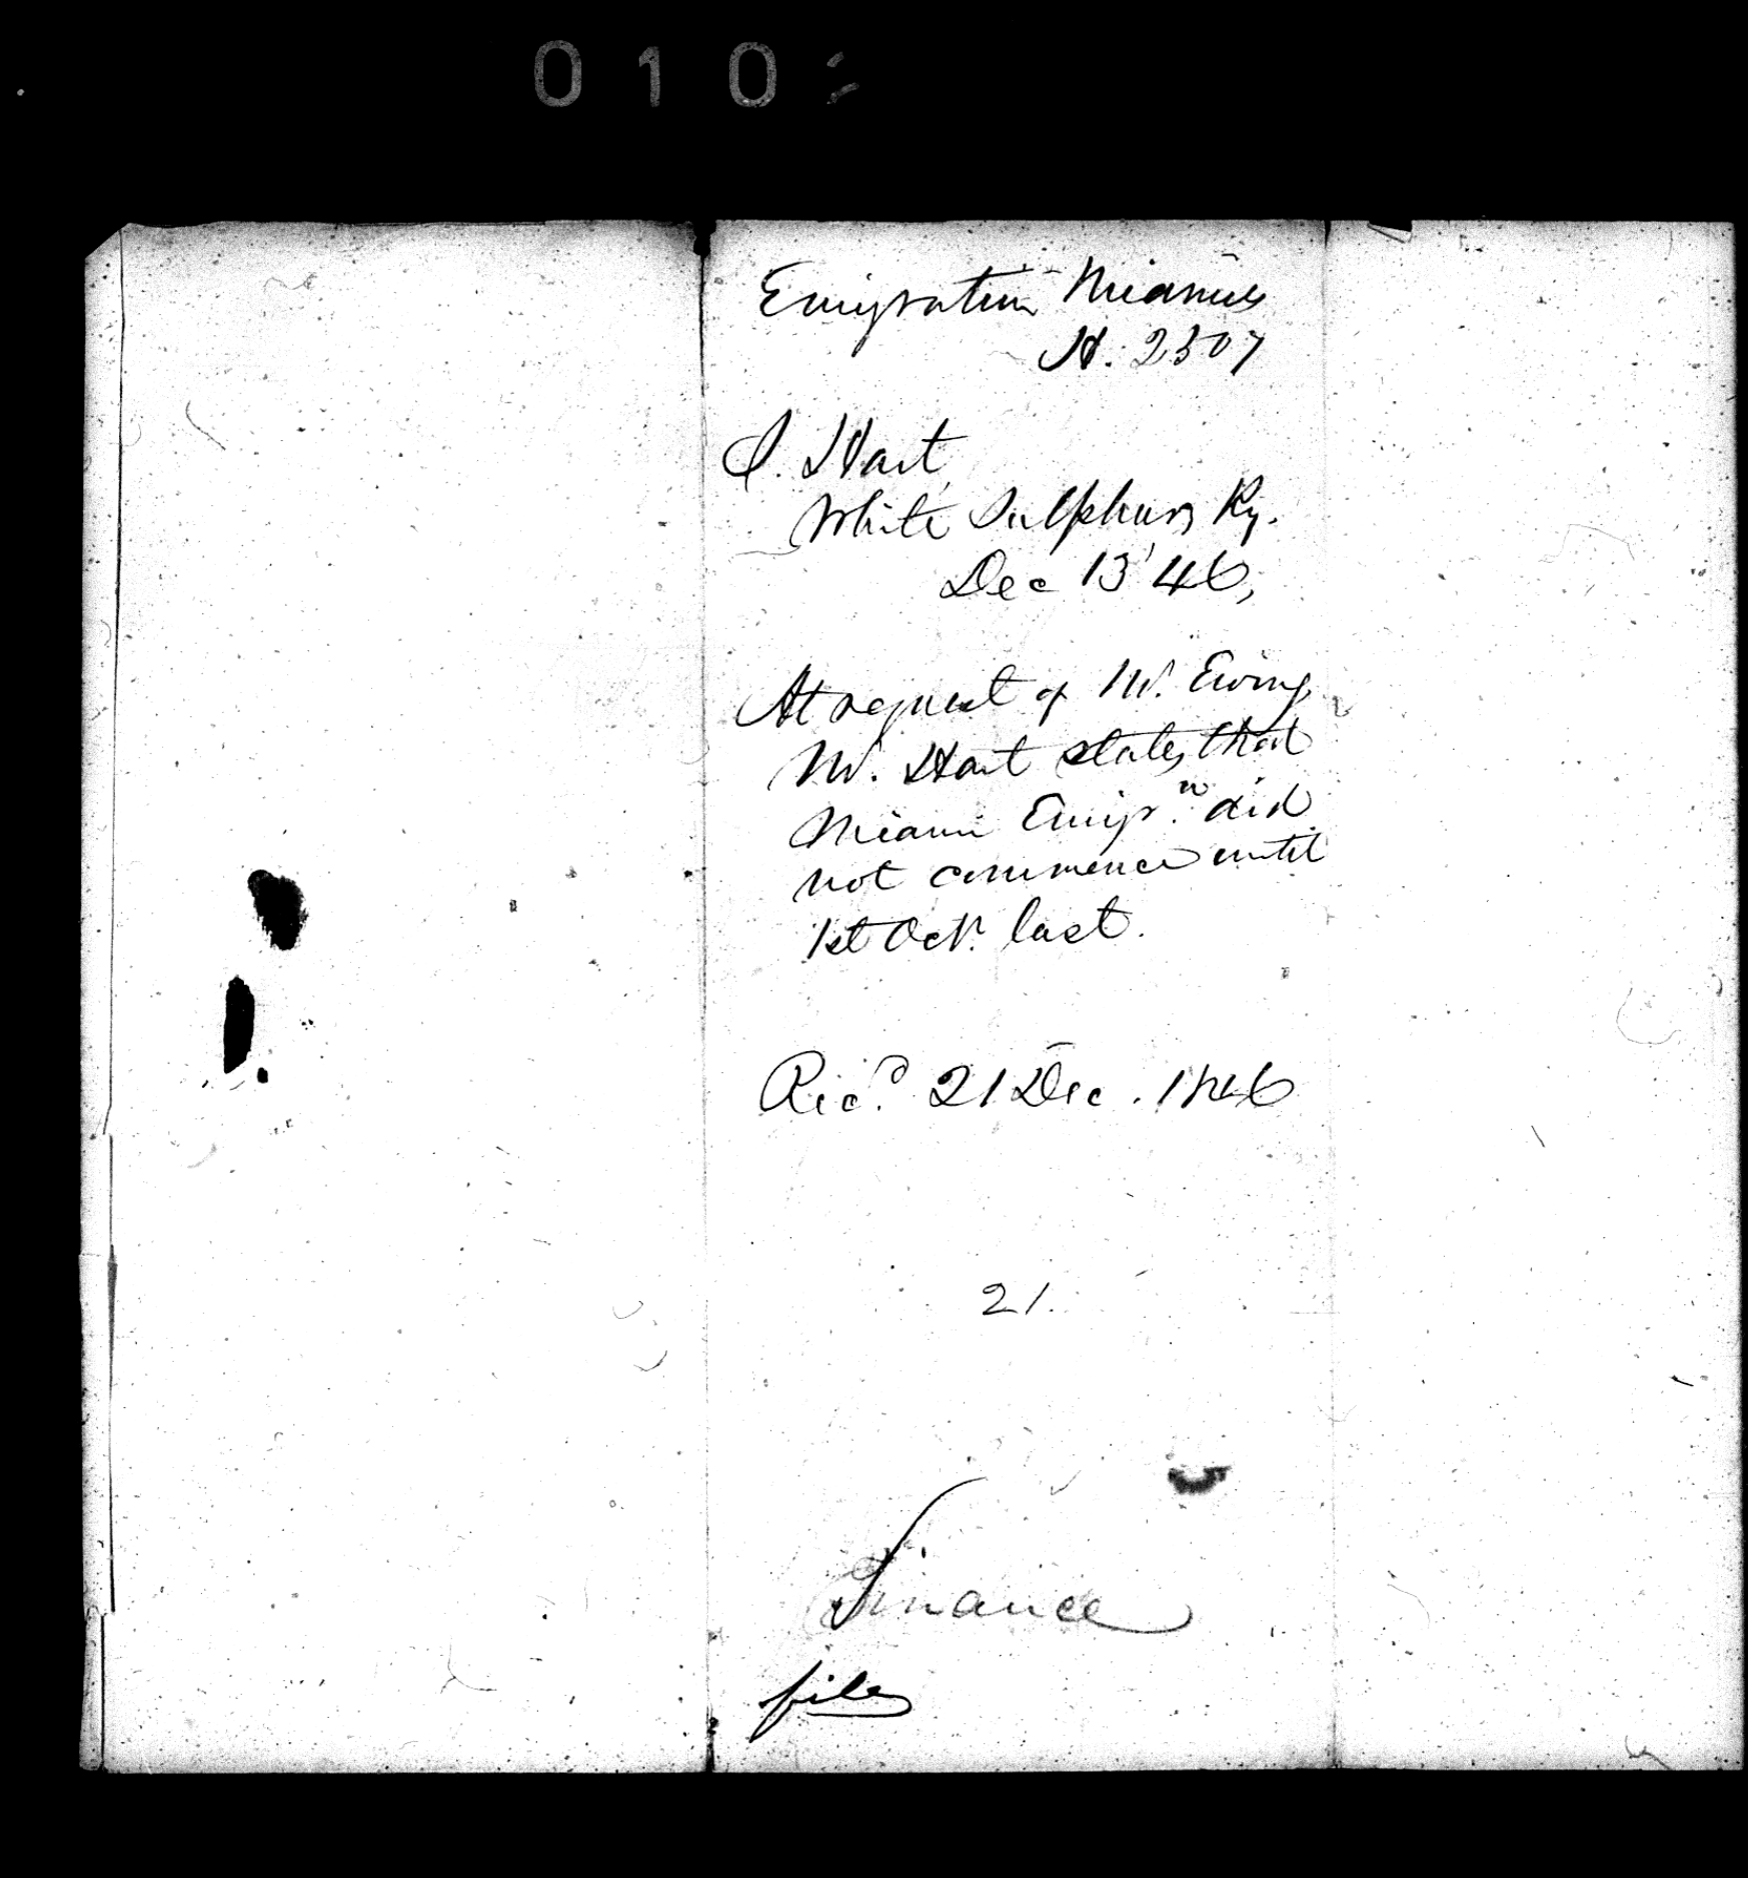 010
Emigration Miamies
H. 2307
J. Hart
White Sulphurs Ky.
Dec 13 '46,
At request of Mr. Ewing
Mr. Hart states that
Miami Emigr.n did
not commence until
1st Oct. last.
Rec.d 21 Dec. 1846
21.
Finance
file